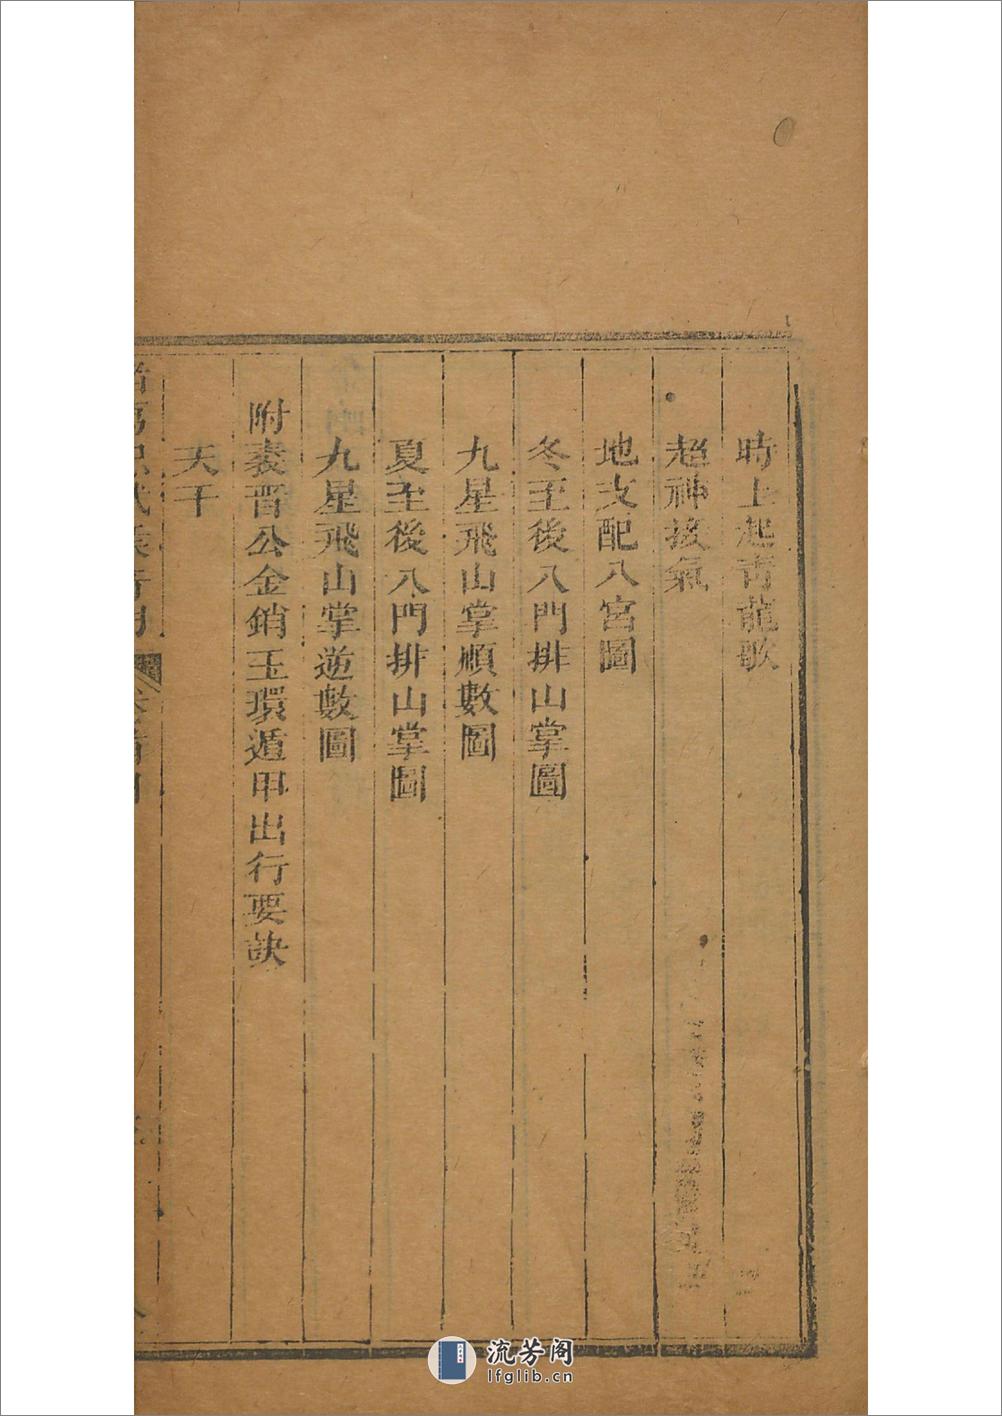 時上起青龍歌
超神接氣
地支配八宮圖
冬至後八門排山掌圖
九星飛山掌順數圖
夏至後八門排山掌圖
九星飛山掌逆數圖
附裴晋公金銷玉環遁甲出行要訣
天干
流芳阁
lfglib.cn